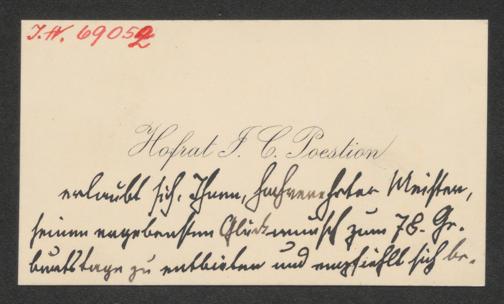 J.N. 69052
Hofrat J. C. Poestion
erlaubt sich, Ihnen, hochverehrter Meister,
seinen ergebensten Glückwunsch zum 78. Ge-
burtstage zu entbieten und empfiehlt sich be-